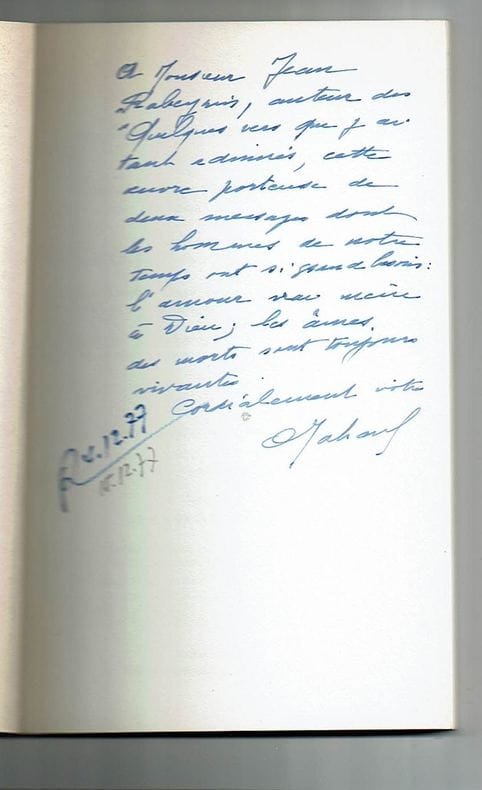 A Monsieur Jean
Rabeyrin, auteur des
"Quelques vers que j'ai
tant admirés, cette
œuvre porteuse de
deux messages dont
les hommes de notre
temps ont si grand besoin :
l'amour vrai mène
à Dieu ; les âmes
des morts sont toujours
vivantes
Cordialement votre
.12.77
15.12.77